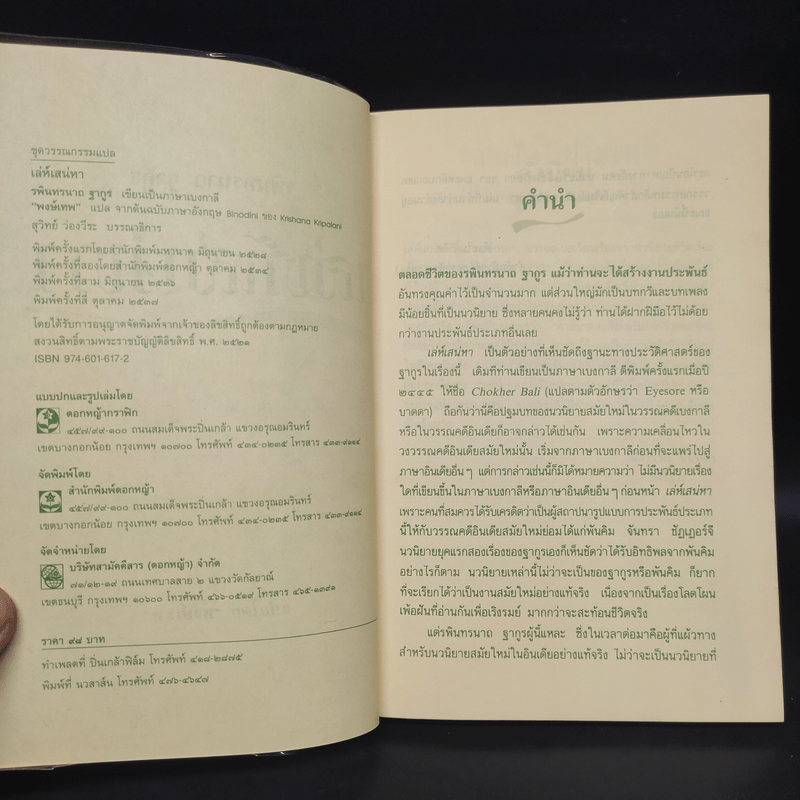 ชุดวรรณกรรมแปล
เล่ห์เสน่หา
รพินทรนาถ ฐากูร เขียนเป็นภาษาเบงกาลี
"พงษ์เทพ" แปล จากต้นฉบับภาษาอังกฤษ Binodini ของ Krishana Kripalani
สุวิทย์ ว่องวีระ บรรณาธิการ
พิมพ์ครั้งแรกโดยสำนักพิมพ์มหานาค มิถุนายน ๒๕๒๘
พิมพ์ครั้งที่สองโดยสำนักพิมพ์ดอกหญ้า ตุลาคม ๒๕๓๔
พิมพ์ครั้งที่สาม มิถุนายน ๒๕๓๖
พิมพ์ครั้งที่สี่ ตุลาคม ๒๕๓๗
โดยได้รับการอนุญาตจัดพิมพ์จากเจ้าของลิขสิทธิ์ถูกต้องตามกฎหมาย
สงวนสิทธิ์ตามพระราชบัญญัติลิขสิทธิ์ พ.ศ. ๒๕๒๑
ISBN 974-601-617-2
แบบปกและรูปเล่มโดย
ดอกหญ้ากราฟิก
๔๕๗/๙๙-๑๐๐ ถนนสมเด็จพระปิ่นเกล้า แขวงอรุณอมรินทร์
เขตบางกอกน้อย กรุงเทพฯ ๑๐๗๐๐ โทรศัพท์ ๔๓๔-๐๒๓๕ โทรสาร ๔๓๓-๙๑๑๔
จัดพิมพ์โดย
สำนักพิมพ์ดอกหญ้า
๔๕๗/๙๙-๑๐๐ ถนนสมเด็จพระปิ่นเกล้า แขวงอรุณอมรินทร์
เขตบางกอกน้อย กรุงเทพฯ ๑๐๗๐๐ โทรศัพท์ ๔๓๔-๐๒๓๕ โทรสาร ๔๓๓-๙๑๑๔
จัดจำหน่ายโดย
บริษัทสามัคคีสาร (ดอกหญ้า) จำกัด
๗๑/๑๒-๑๙ ถนนเทศบาลสาย ๒ แขวงวัดกัลยาณ์
เขตธนบุรี กรุงเทพฯ ๑๐๖๐๐ โทรศัพท์ ๔๖๖-๐๕๑๙ โทรสาร ๔๖๕-๑๓๙๑
ราคา ๙๘ บาท
ทำเพลตที่ ปิ่นเกล้าฟิล์ม โทรศัพท์ ๔๑๘-๒๘๗๕
พิมพ์ที่ นวสาส์น โทรศัพท์ ๔๗๖-๕๖๔๗
คำนำ
ตลอดชีวิตของรพินทรนาถ ฐากูร แม้ว่าท่านจะได้สร้างงานประพันธ์
อันทรงคุณค่าไว้เป็นจำนวนมาก แต่ส่วนใหญ่มักเป็นบทกวีและบทเพลง
มีน้อยชิ้นที่เป็นนวนิยาย ซึ่งหลายคนคงไม่รู้ว่า ท่านได้ฝากฝีมือไว้ไม่ด้อย
กว่างานประพันธ์ประเภทอื่นเลย
เล่ห์เสน่หา เป็นตัวอย่างที่เห็นชัดถึงฐานะทางประวัติศาสตร์ของ
ฐากูรในเรื่องนี้ เดิมทีท่านเขียนเป็นภาษาเบงกาลี ตีพิมพ์ครั้งแรกเมื่อปี
๒๔๔๕ ให้ชื่อ Chokher Bali (แปลตามตัวอักษรว่า Eyesore หรือ
บาดตา) ถือกันว่านี่คือปฐมบทของนวนิยายสมัยใหม่ในวรรณคดีเบงกาลี
หรือในวรรณคดีอินเดียก็อาจกล่าวได้เช่นกัน เพราะความเคลื่อนไหวใน
วงวรรณคดีอินเดียสมัยใหม่นั้น เริ่มจากภาษาเบงกาลีก่อนที่จะแพร่ไปสู่
ภาษาอินเดียอื่นๆ แต่การกล่าวเช่นนี้ก็มิได้หมายความว่า ไม่มีนวนิยายเรื่อง
ใดที่เขียนขึ้นในภาษาเบงกาลีหรือภาษาอินเดียอื่นๆ ก่อนหน้า เล่ห์เสน่หา
เพราะคนที่สมควรได้รับเครดิตว่าเป็นผู้สถาปนารูปแบบการประพันธ์ประเภท
นี้ให้กับวรรณคดีอินเดียสมัยใหม่ย่อมได้แก่พันคิม จันทรา ชัฏเฏอร์จี
นวนิยายยุคแรกสองเรื่องของฐากูรเองก็เห็นชัดว่าได้รับอิทธิพลจากพันคิม
อย่างไรก็ตาม นวนิยายเหล่านี้ไม่ว่าจะเป็นของฐากูรหรือพันคิม ก็ยาก
ที่จะเรียกได้ว่าเป็นงานสมัยใหม่อย่างแท้จริง เนื่องจากเป็นเรื่องโลดโผน
เพ้อฝันที่อ่านกันเพื่อเริงรมย์ มากกว่าจะสะท้อนชีวิตจริง
แต่รพินทรนาถ ฐากูรผู้นี้แหละ ซึ่งในเวลาต่อมาคือผู้ที่แผ้วทาง
สำหรับนวนิยายสมัยใหม่ในอินเดียอย่างแท้จริง ไม่ว่าจะเป็นนวนิยายที่